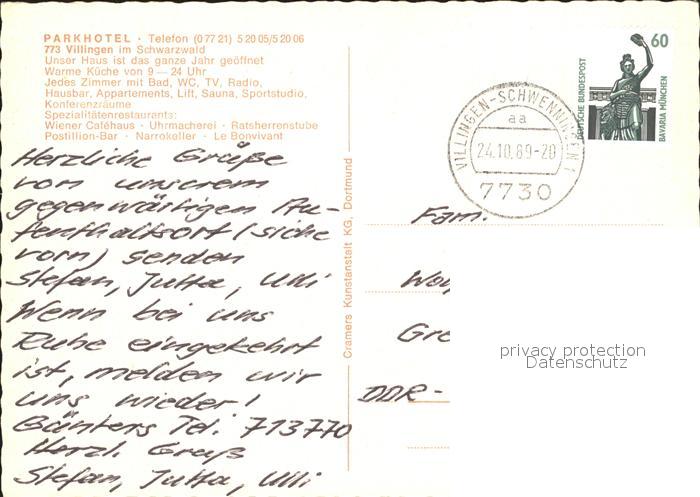 PARKHOTEL · Telefon (0 77 21) 5 20 05/5 20 06
773 Villingen im Schwarzwald
Unser Haus ist das ganze Jahr geöffnet
Warme Küche von 9 — 24 Uhr
Jedes Zimmer mit Bad, WC, TV, Radio,
Hausbar, Appartements, Lift, Sauna, Sportstudio,
Konferenzräume
Spezialitätenrestaurants:
Wiener Caféhaus · Uhrmacherei · Ratsherrenstube
Postillion-Bar · Narrokeller · Le Bonvivant
Herzliche Grüße
von unserem
gegenwärtigen Au-
fenthaltsort (siehe
vorn) senden
Stefan, Jutta, Ulli
Wenn bei uns
Ruhe eingekehrt
ist, melden wir
uns wieder!
Günters Tel. 713770
Herzl. Gruß
Stefan, Jutta, Ulli
Cramers Kunstanstalt KG, Dortmund
VILLINGEN-SCHWENNINGEN 1
aa
24.10.89-20
7730
60
DEUTSCHE BUNDESPOST
BAVARIA MÜNCHEN
Fam.
Gre
DDR-
privacy protection
Datenschutz